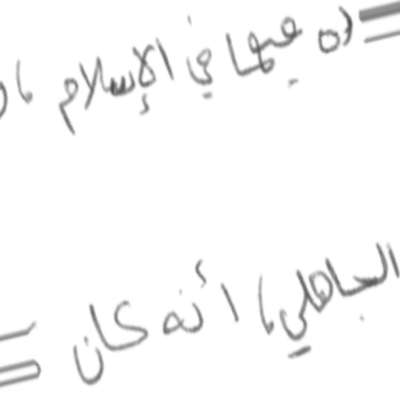 عيها في الإسلام،
الجاهلي، أنه كان